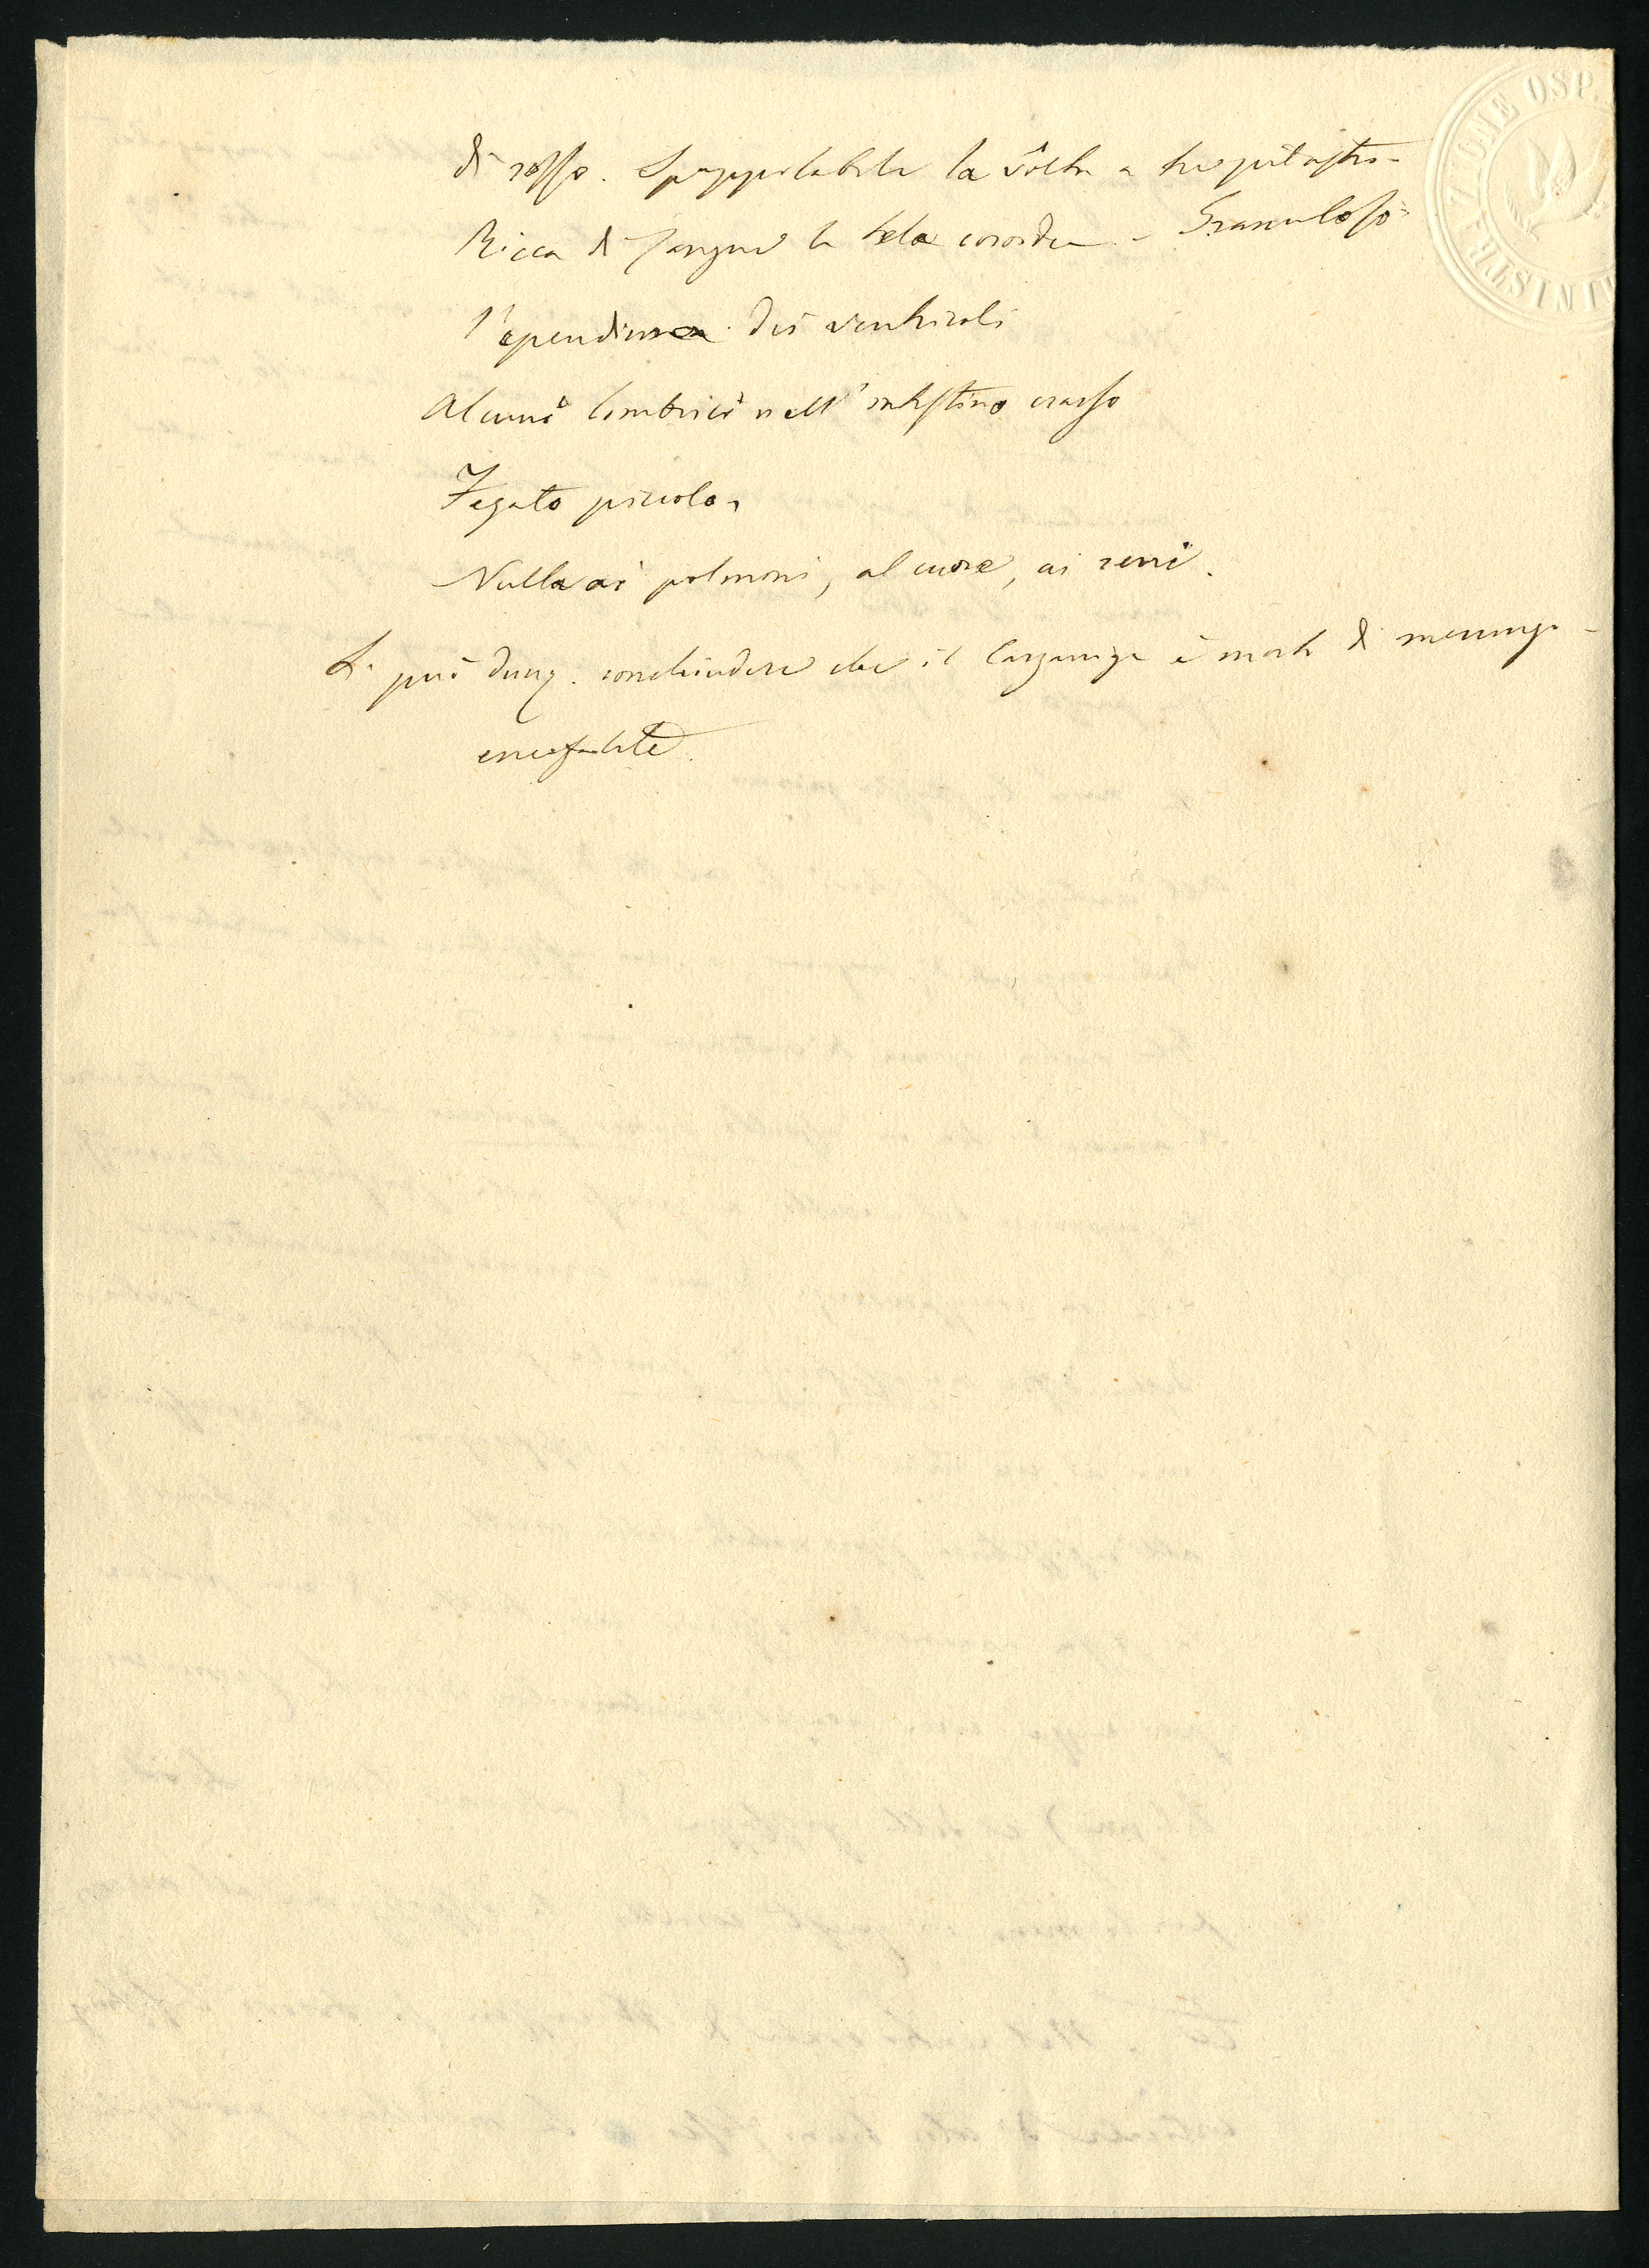 di rosso. Spappolabile la vôlta a tre pilastri -
Ricca di sangue la tela coroidea - Granuloso
l'ependima dei ventricoli
Alcuni lombrici nell'intestino crasso
Fegato piccolo -
Nulla ai polmoni, al cuore, ai reni.
Si può dunq. conchiudere che il è morto di meningo -
encefalite.
OSP.